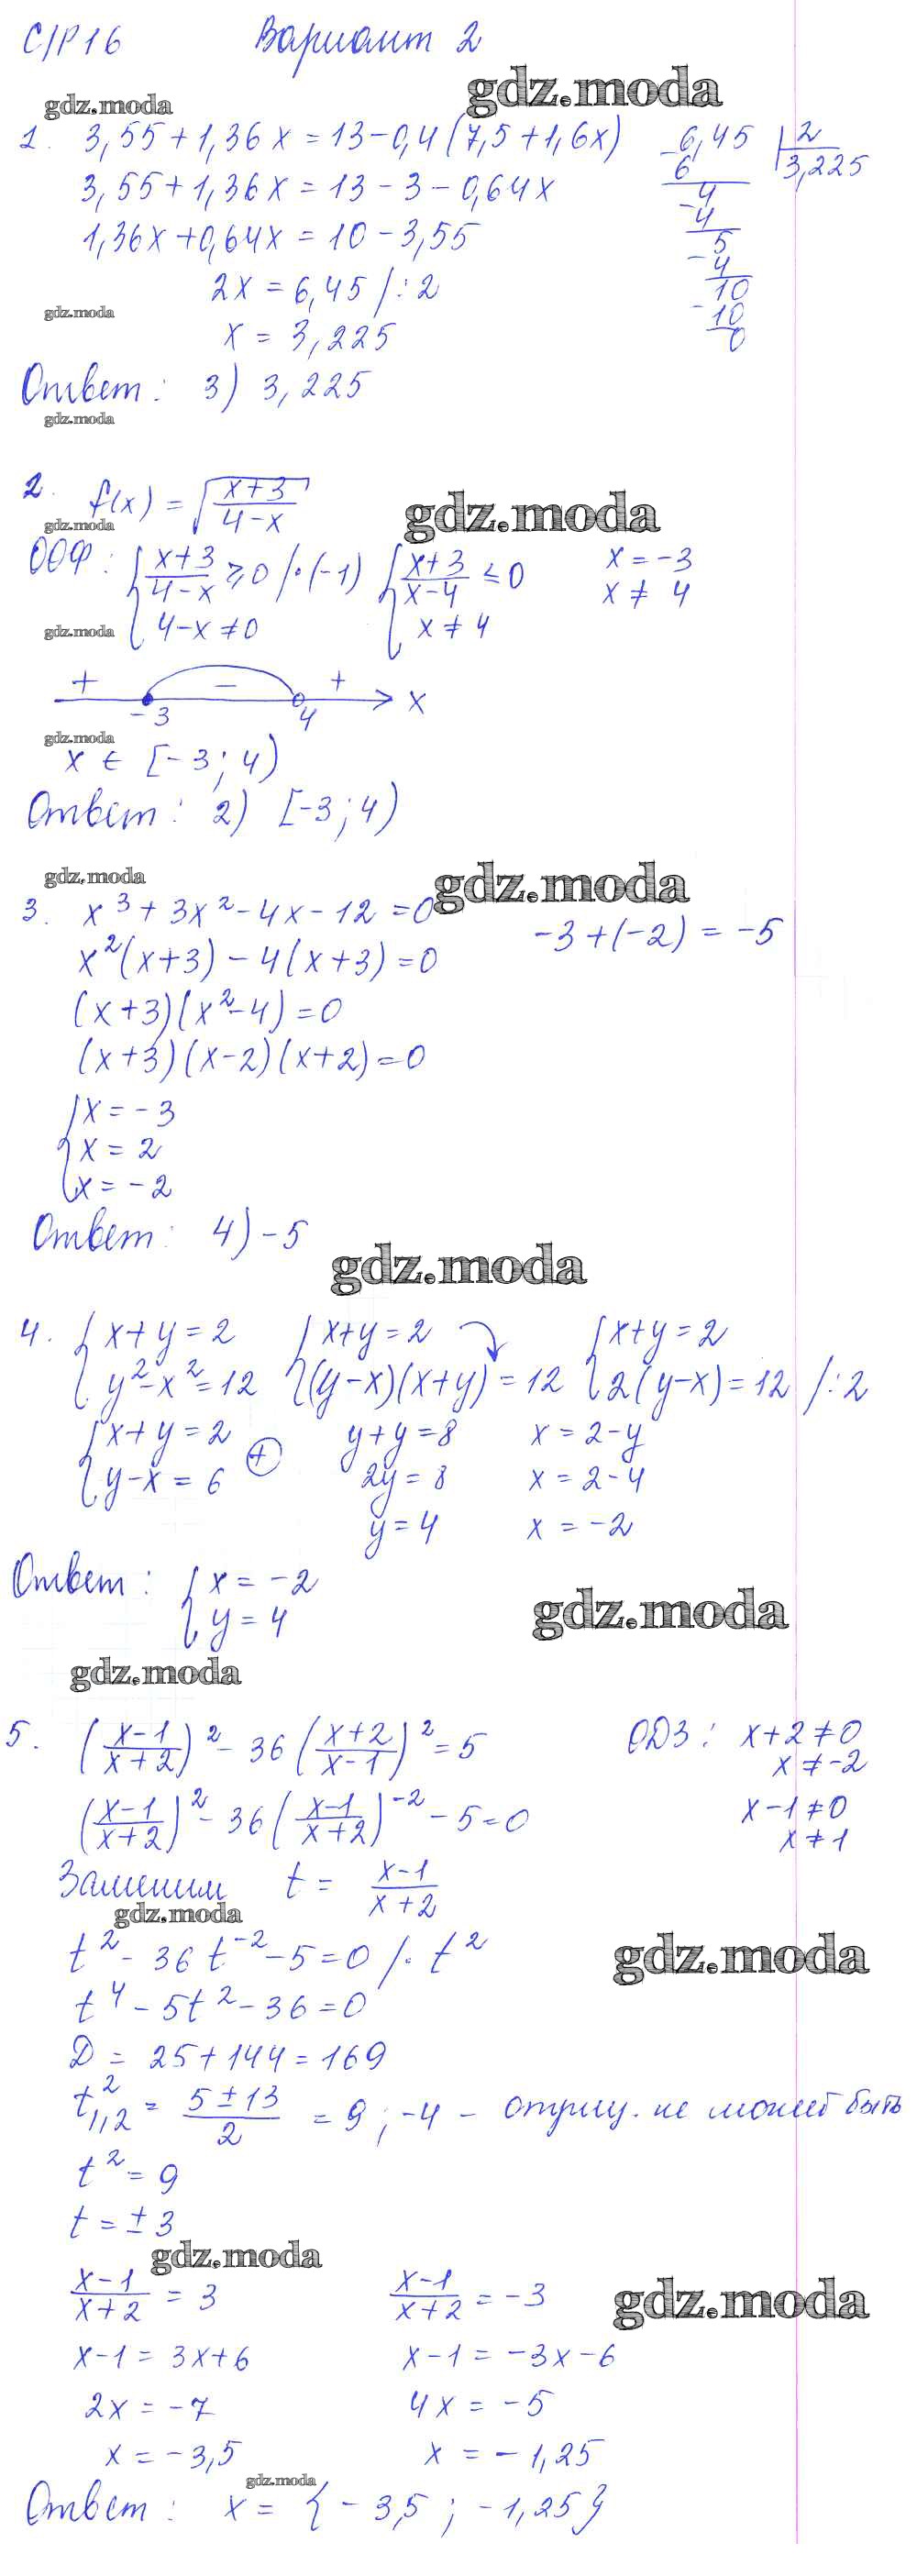 С/Р 16 Вариант 2
gdz.moda gdz.moda
1. 3,55 + 1,36x = 13 - 0,4(7,5 + 1,6x) 6,45 | 2
3,55 + 1,36x = 13 - 3 - 0,64x -6 3,225
1,36x + 0,64x = 10 - 3,55 4
-4
5
2x = 6,45 /:2 -4
10
gdz.moda
x = 3,225 -10
0
Ответ: 3) 3,225
gdz.moda
2. f(x) = √((x+3)/(4-x)) gdz.moda
gdz.moda
ООФ: { (x+3)/(4-x) ≥ 0 /·(-1) { (x+3)/(x-4) ≤ 0 x = -3
4-x ≠ 0 x ≠ 4 x ≠ 4
gdz.moda
+ - + x
-3 4
gdz.moda
x ∈ [-3; 4)
Ответ: 2) [-3; 4)
gdz.moda gdz.moda
3. x³ + 3x² - 4x - 12 = 0 -3 + (-2) = -5
x²(x+3) - 4(x+3) = 0
(x+3)(x²-4) = 0
(x+3)(x-2)(x+2) = 0
{ x = -3
x = 2
x = -2
Ответ: 4) -5
gdz.moda
4. { x+y = 2 { x+y = 2 { x+y = 2
y²-x² = 12 (y-x)(x+y) = 12 2(y-x) = 12 /:2
{ x+y = 2 + y+y = 8 x = 2-y
y-x = 6 2y = 8 x = 2-4
y = 4 x = -2
Ответ: { x = -2
y = 4
gdz.moda
gdz.moda
5. ((x-1)/(x+2))² - 36((x+2)/(x-1))² = 5 ОДЗ: x+2 ≠ 0
x ≠ -2
((x-1)/(x+2))² - 36((x-1)/(x+2))⁻² - 5 = 0 x-1 ≠ 0
x ≠ 1
Заменим t = (x-1)/(x+2)
gdz.moda
t² - 36t⁻² - 5 = 0 /·t² gdz.moda
t⁴ - 5t² - 36 = 0
D = 25 + 144 = 169
t²₁,₂ = (5±13)/2 = 9; -4 - отриц. не может быть
t² = 9
t = ±3
gdz.moda
(x-1)/(x+2) = 3 (x-1)/(x+2) = -3 gdz.moda
x-1 = 3x+6 x-1 = -3x-6
2x = -7 4x = -5
x = -3,5 x = -1,25
gdz.moda
Ответ: x = {-3,5; -1,25}